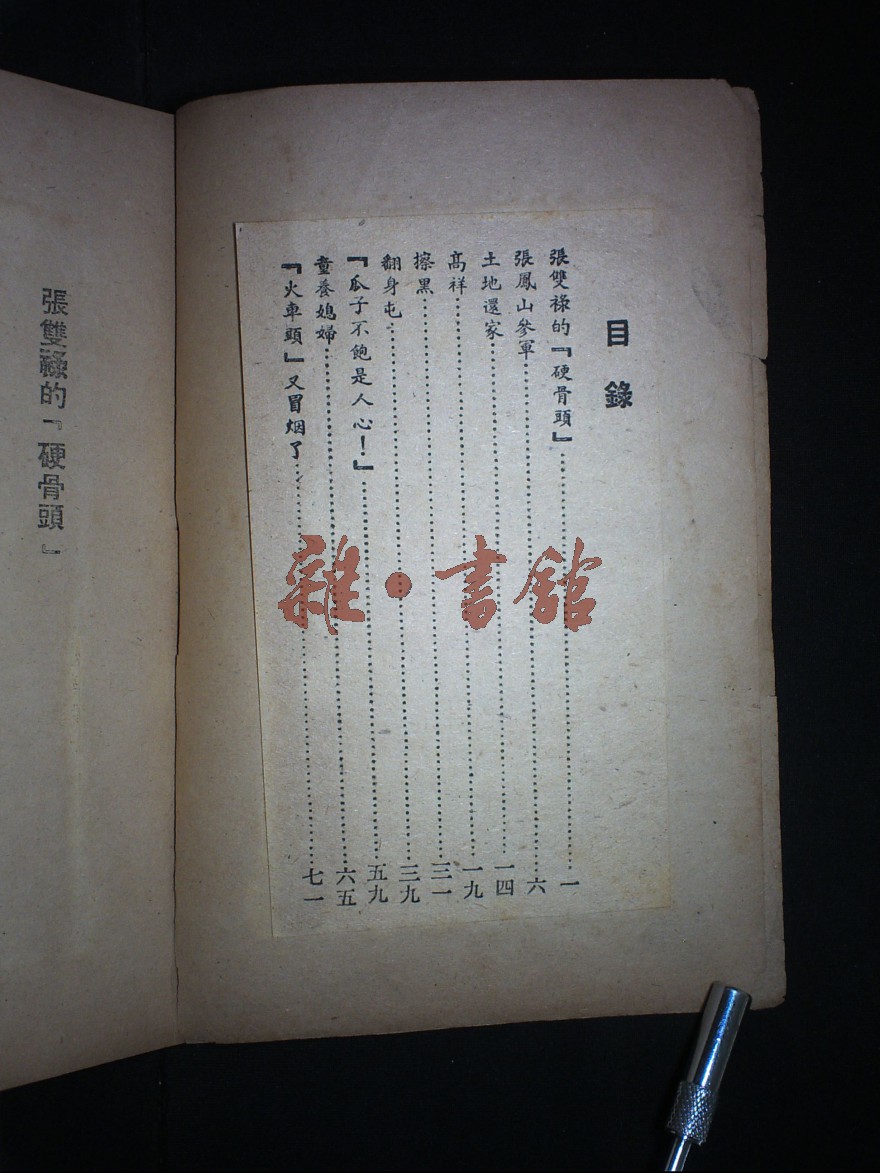 目錄
張雙祿的『硬骨頭』……一
張鳳山參軍……六
土地還家……一四
高祥……一九
擦黑……三一
翻身屯……三九
『瓜子不飽是人心！』……五九
童養媳婦……六五
『火車頭』又冒烟了……七一
張雙祿的『硬骨頭』
雜·書館